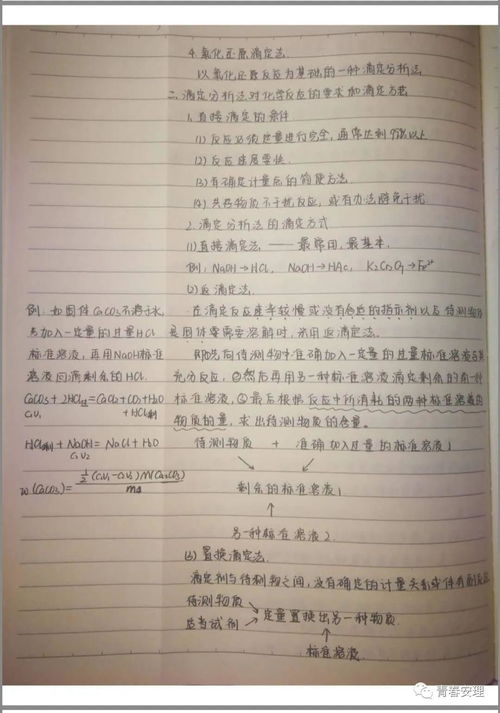 4. 氧化还原滴定法
以氧化还原反应为基础的一种滴定分析法
二. 滴定分析法对化学反应的要求和滴定方式
1. 直接滴定的条件
(1) 反应必须定量进行完全, 通常达到99%以上
(2) 反应速度要快.
(3) 有确定计量点的简便方法
(4) 共存物质不干扰反应, 或有办法避免干扰
2. 滴定分析法的滴定方式
(1) 直接滴定法 —— 最常用, 最基本.
例: NaOH→HCl, NaOH→HAc, K2Cr2O7→Fe2+
(2) 返滴定法.
在滴定反应速率较慢或没有合适的指示剂以及待测物质
是固体需要溶解时, 采用返滴定法.
即①先向待测物中准确加入一定的过量标准溶液
充分反应, ②然后再用另一种标准溶液滴定剩余的前一种
标准溶液, ③最后根据反应中所消耗的两种标准溶液的
物质的量, 求出待测物质的含量.
待测物质 + 准确加入过量的标准溶液1
剩余的标准溶液1
↑
另一种标准溶液2
例: 如固体CaCO3不溶于水,
先加入一定量的过量HCl
标准溶液, 再用NaOH标准
溶液回滴剩余的HCl.
CaCO3+2HCl过=CaCl2+CO2+H2O
C1V1 +HCl剩
HCl剩+NaOH=NaCl+H2O
C2V2
w(CaCO3)=½(C1V1-C2V2)M(CaCO3)/ms
(3) 置换滴定法.
滴定剂与待测物之间, 没有确定的计量关系或伴有副反应
待测物质
适当试剂 → 定量置换出另一种物质
↑
标准溶液
青春安理